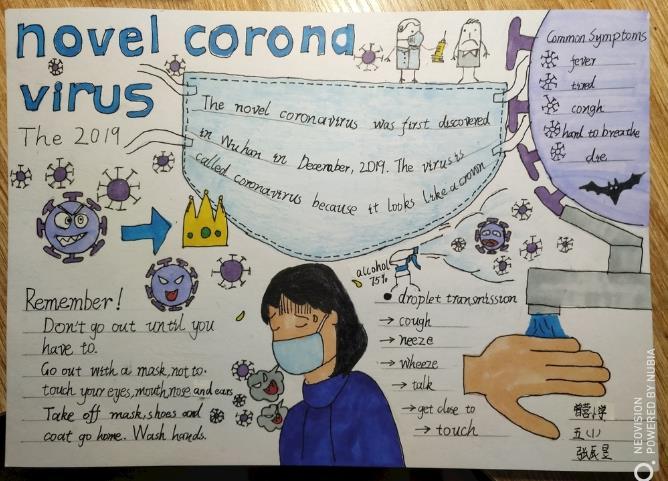 novel corona
virus
The 2019
The novel coronavirus was first discovered
in Wuhan in December, 2019. The virus is
called coronavirus because it looks like a crown
Common Symptoms
fever
tired
congh
hard to breathe
die
alcohol
75%
Remember!
Don't go out until you
have to.
Go out with a mask, not to
touch your eyes, mouth, nose and ears
Take off mask, shoes and
coat go home. Wash hands.
droplet transmission
→ cough
→ neeze
→ wheeze
→ talk
→ get close to
→ touch
五(1)
NEOVISION
POWERED BY NUBIA